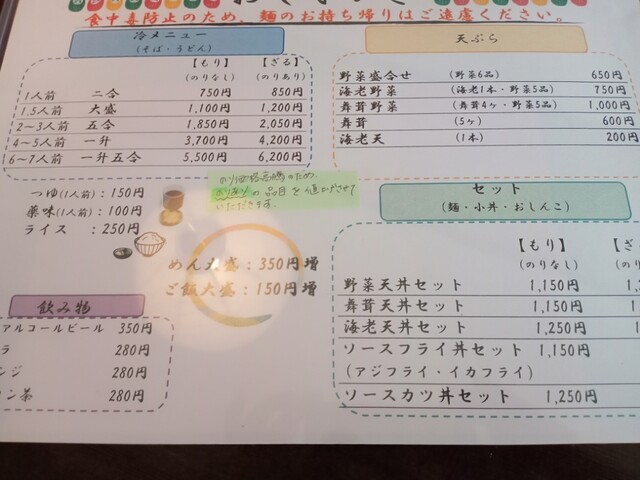 食中毒防止のため、麺のお持ち帰りはご遠慮ください。
冷メニュー
(そば・うどん)
【もり】 【ざる】
(のりなし) (のりあり)
1人前 二合 750円 850円
1.5人前 大盛 1,100円 1,200円
2～3人前 五合 1,850円 2,050円
4～5人前 一升 3,700円 4,200円
6～7人前 一升五合 5,500円 6,200円
つゆ(1人前):150円
薬味(1人前):100円
ライス :250円
のり価格高騰のため、
のりありの品目を値上げさせて
いただきます。
めん大盛:350円増
ご飯大盛:150円増
飲み物
アルコールビール 350円
ラ 280円
ンジ 280円
ン茶 280円
天ぷら
野菜盛合せ (野菜6品) 650円
海老野菜 (海老1本・野菜5品) 750円
舞茸野菜 (舞茸4ヶ・野菜5品) 1,000円
舞茸 (5ヶ) 600円
海老天 (1本) 200円
セット
(麺・小丼・おしんこ)
【もり】 【ざ
(のりなし) (の
野菜天丼セット 1,150円 1,
舞茸天丼セット 1,150円 1
海老天丼セット 1,250円 1
ソースフライ丼セット 1,150円
(アジフライ・イカフライ)
ソースカツ丼セット 1,250円